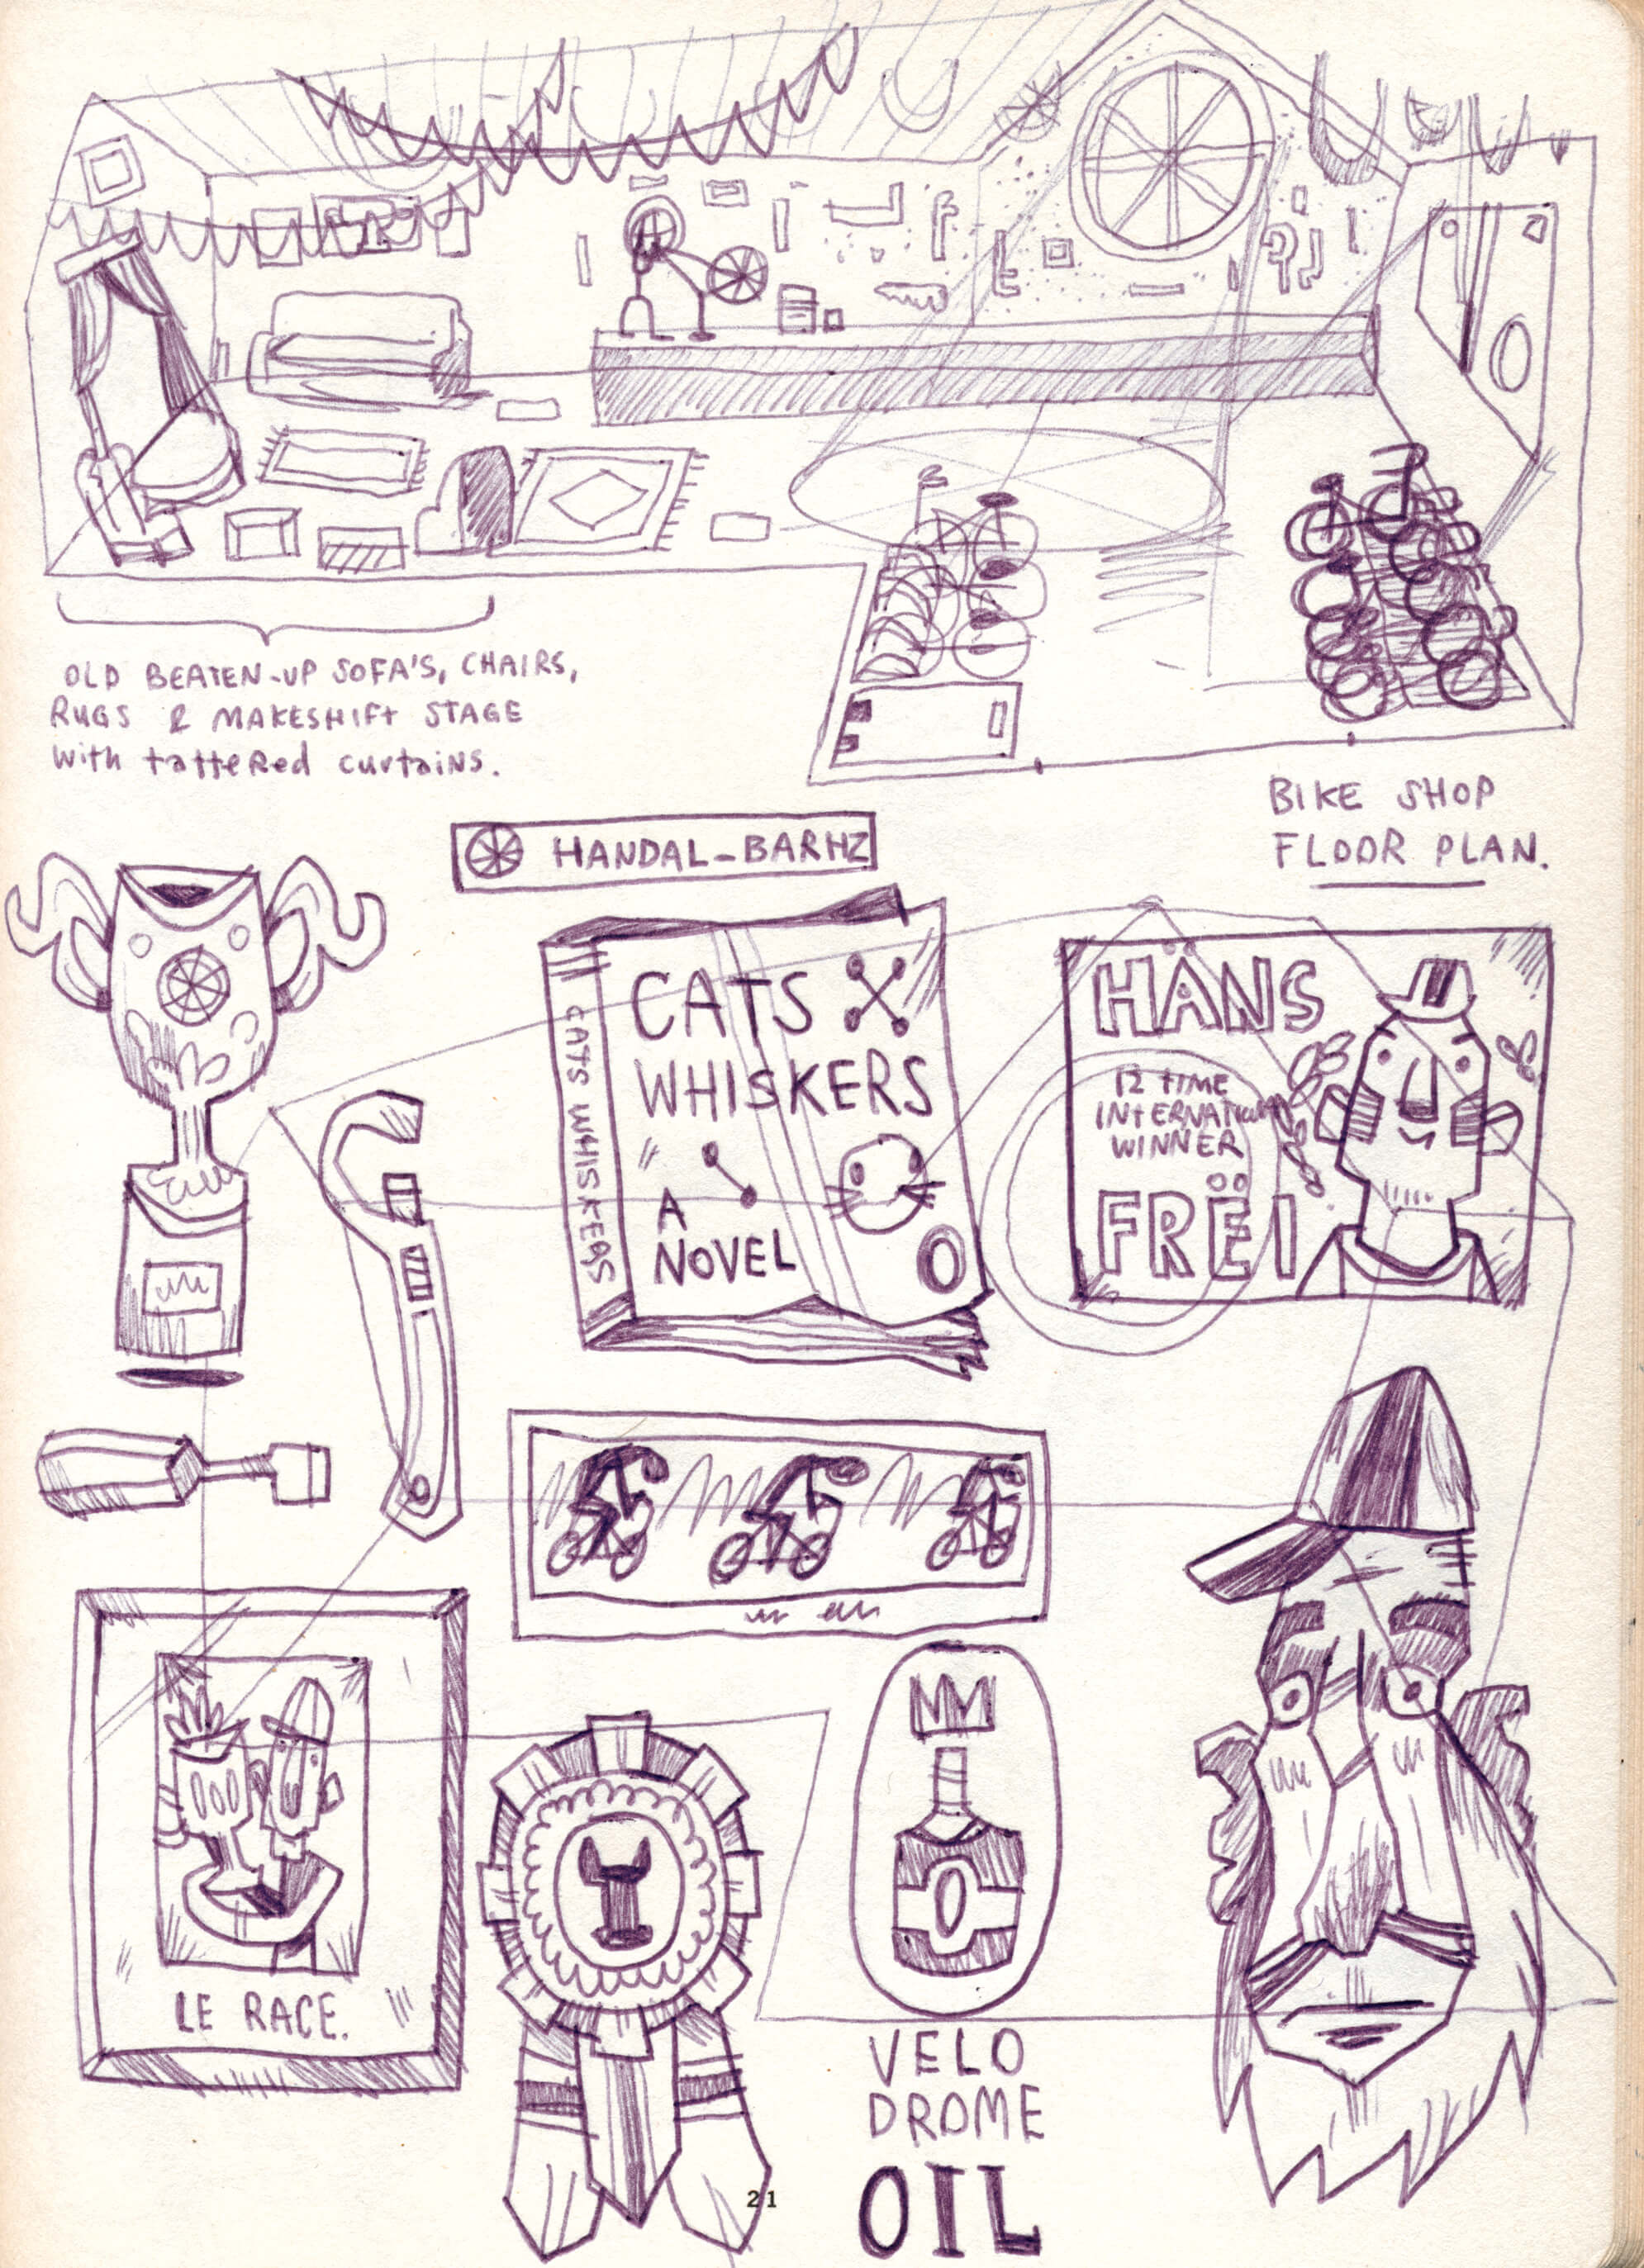 OLD BEATEN-UP SOFA'S, CHAIRS,
RUGS & MAKESHIFT STAGE
with tattered curtains.
BIKE SHOP
FLOOR PLAN.
HANDAL-BARHZ
CATS
WHISKERS
A
NOVEL
CATS WHISKERS
HÄNS
12 TIME
INTERNATIONAL
WINNER
FRËI
LE RACE.
VELO
DROME
OIL
21